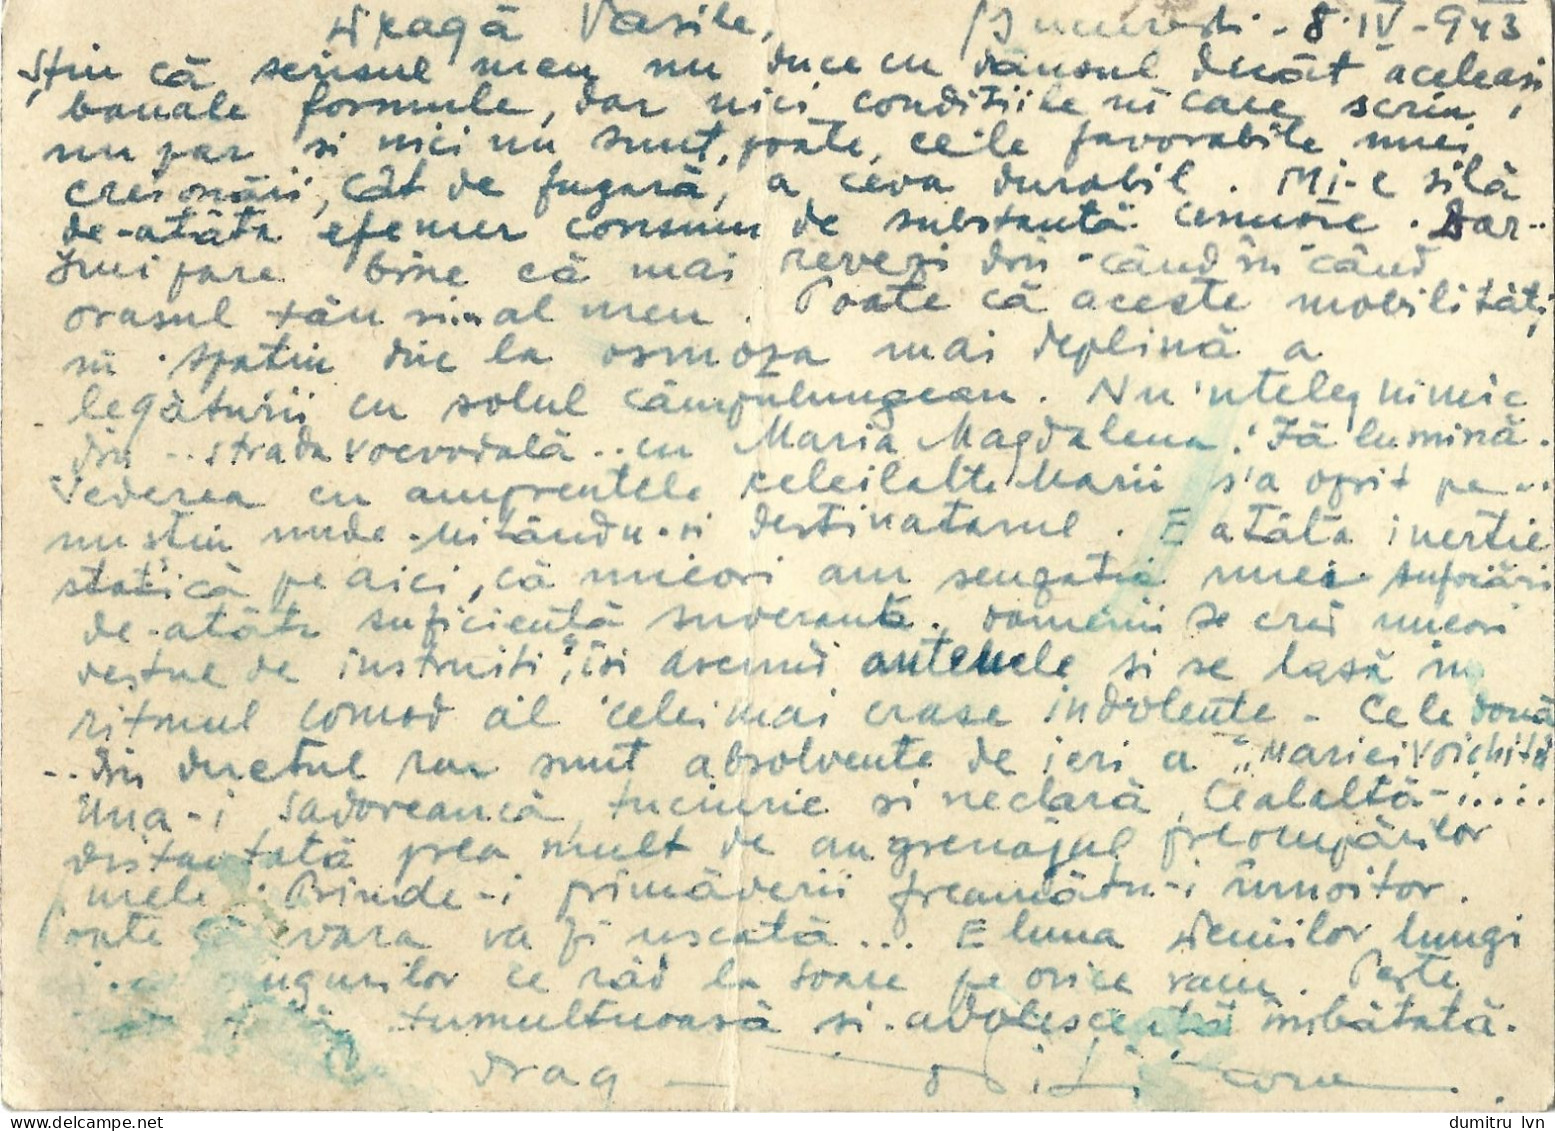 Dragă Vasile, București - 8.IV-943
Știu că scrisul meu nu duce cu dânsul decât aceleași
banale formule, dar nici condițiile în care scriu,
nu par și nici nu sunt, poate, cele favorabile unei
creionări, cât de fugară, a ceva durabil. Mi-e silă
de-atâta efemer consum de substanță cenușie. Dar..
îmi pare bine că mai revezi din când în când
orașul tău și..al meu. Poate că aceste mobilități,
în spațiu duc la osmoza mai deplină a
legăturii cu solul câmpulungean. Nu'nțeleg nimic
din ..strada voevodală..cu Maria Magdalena! Fă lumină.
Vederea cu amprentele celeilalte Marii s'a oprit pe...
nu știu unde-uitându-și destinatarul. E atâta inerție
statică pe aici, că uneori am senzația unei sufocări
de-atâta suficiență suverană. Oamenii se cred uneori
destul de instruiți, își ascund antenele și se lasă în
ritmul comod al celei mai crase indolente - Cele două
..din duetul rar sunt absolvente de ieri a "Mariei Voichița
Una-i Sadoreancă, tuciurie și neclară, Cealaltă-i....:
distanțată prea mult de angrenajul preocupărilor
mele. Prinde-i primăverii freamătu-i înnoitor.
Poate că vara va fi uscată... E luna deniilor lungi
ugurilor ce râd la soare pe orice ram. Peste
tumultuoasă și-adolescentă îmbătată.
drag —